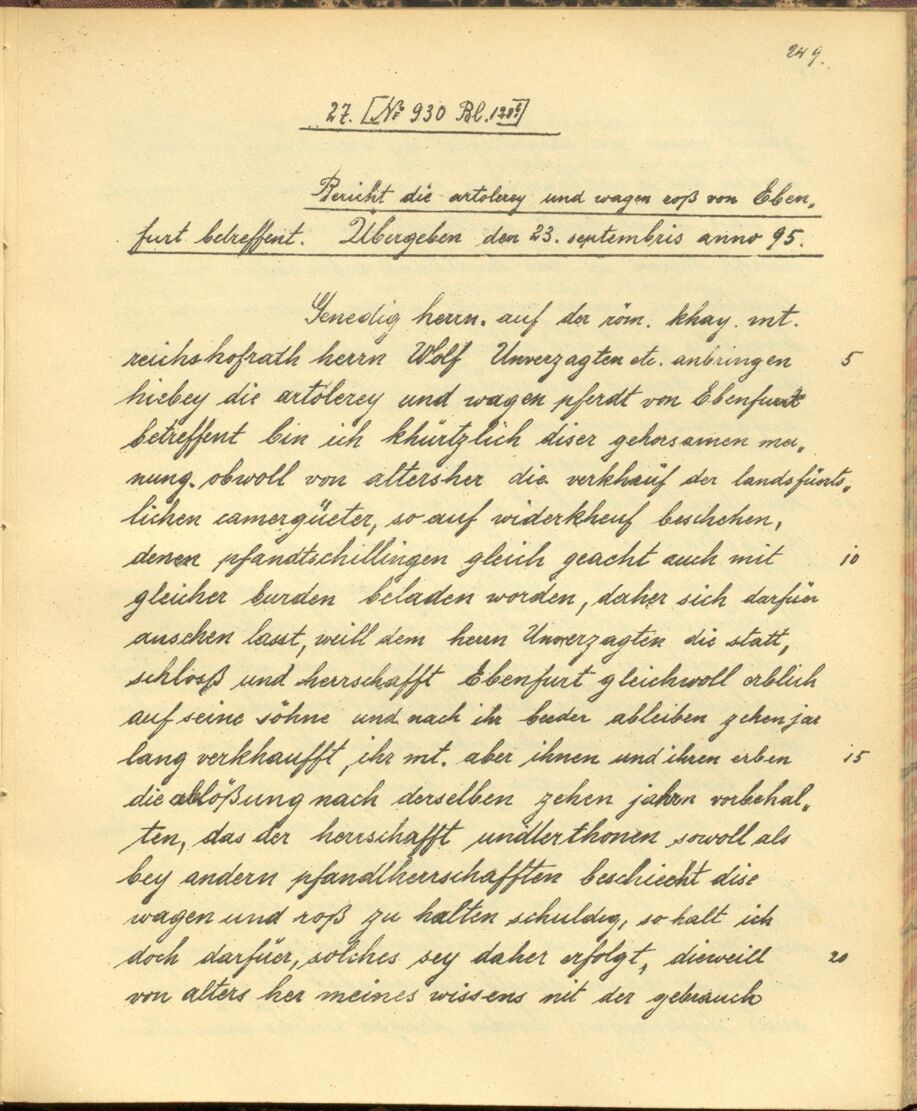 249.
27. [Nr 930 Bl. 128r]
Bericht die artolerey und wagen roß von Eben„
furt betreffent. Übergeben den 23. septembris anno 95.
Genedig herrn. auf der röm. khay. mt.
reichshofrath herrn Wolf Unverzagten etc. anbringen 5
hiebey die artolerey und wagen pferdt von Ebenfurt
betreffent bin ich khürtzlich diser gehorsamen mai„
nung. obwoll von altersher die verkheüf der landsfürts„
lichen camergüeter, so auf widerkheuf beschehen,
denen pfandtschillingen gleich geacht auch mit 10
gleicher burden beladen worden, daher sich darfüer
ansehen lasst, weill dem herrn Unverzagten die statt,
schlosß und herrschafft Ebenfurt gleichwoll erblich
auf seine söhne und nach ihr beeder ableiben zehen jar
lang verkhaufft, ihr mt. aber ihnen und ihren erben 15
die ablößung nach derselben zehen jahrn vorbehal„
ten, das der herrschafft underthonen sowoll als
bey andern pfandtherrschafften beschiecht dise
wagen und roß zu halten schuldig, so halt ich
doch darfüer, solches sey daher erfolgt, dieweill 20
von alters her meines wissens nit der gebrauch